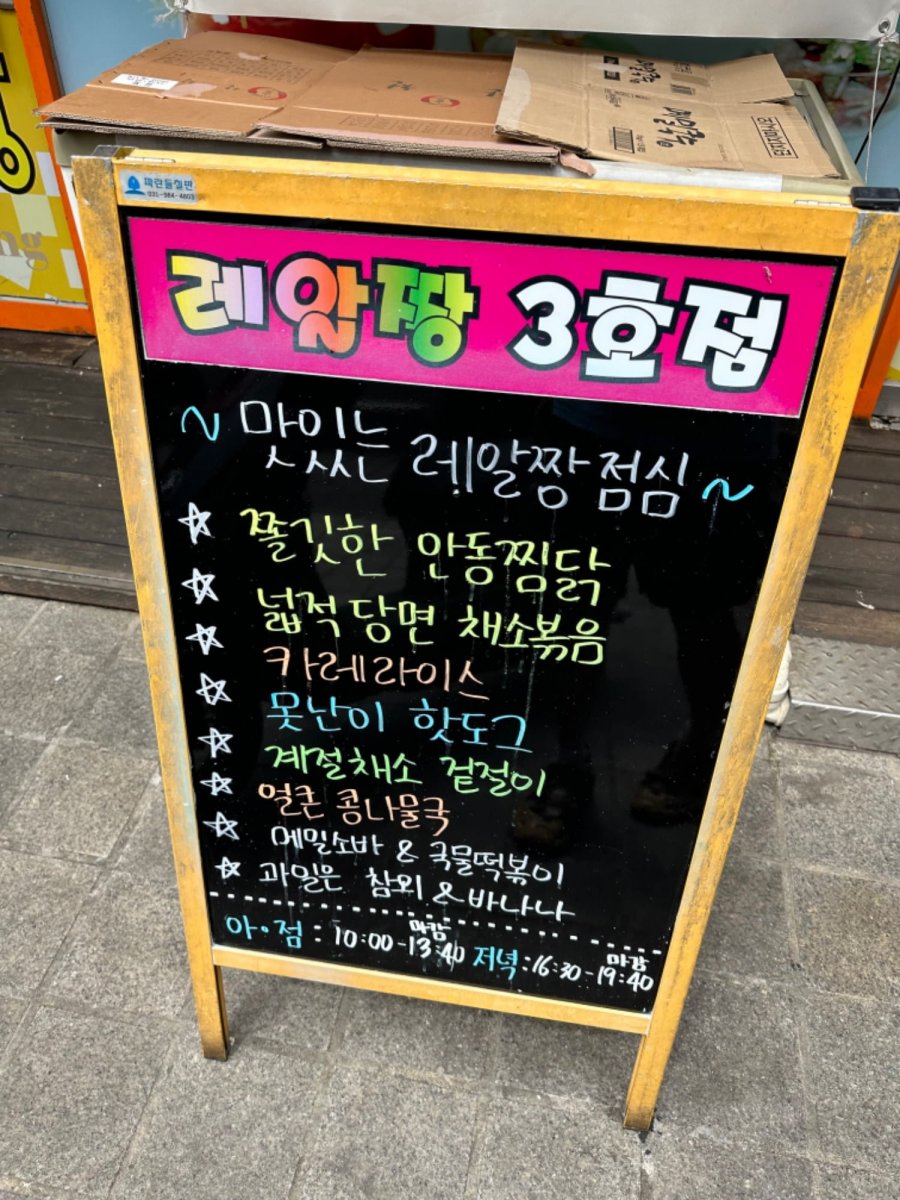 파란들칠판
031-984-4603
레알짱 3호점
~ 맛있는 레알짱 점심 ~
☆ 쫄깃한 안동찜닭
☆ 넓적당면 채소볶음
☆ 카레라이스
☆ 못난이 핫도그
☆ 계절채소 겉절이
☆ 얼큰 콩나물국
☆ 메밀소바 & 국물떡볶이
☆ 과일은 참외 & 바나나
아·점 : 10:00-13:40 마감 저녁:16:30-19:40 마감